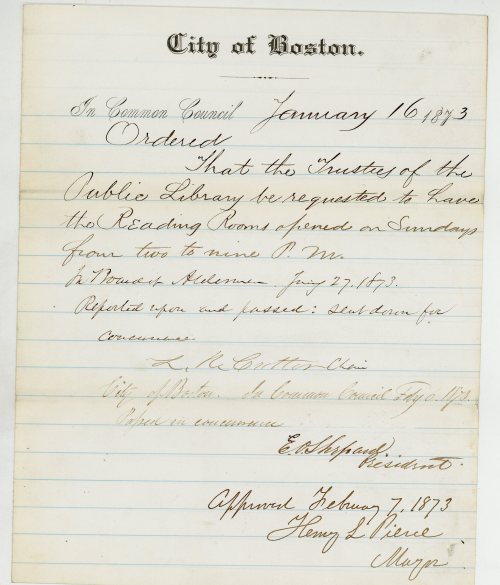 City of Boston.
In Common Council January 16 1873
Ordered
That the Trustees of the
Public Library be requested to have
the Reading Rooms opened on Sundays
from two to nine P. M.
In Board of Aldermen. Jany 27. 1873.
Reported upon and passed: sent down for
concurrence.
L. R. Cutter Chair
City of Boston. In Common Council Feby 6. 1873.
Passed in concurrence
E. O. Shepard.
President.
Approved February 7, 1873
Henry L Pierce
Mayor